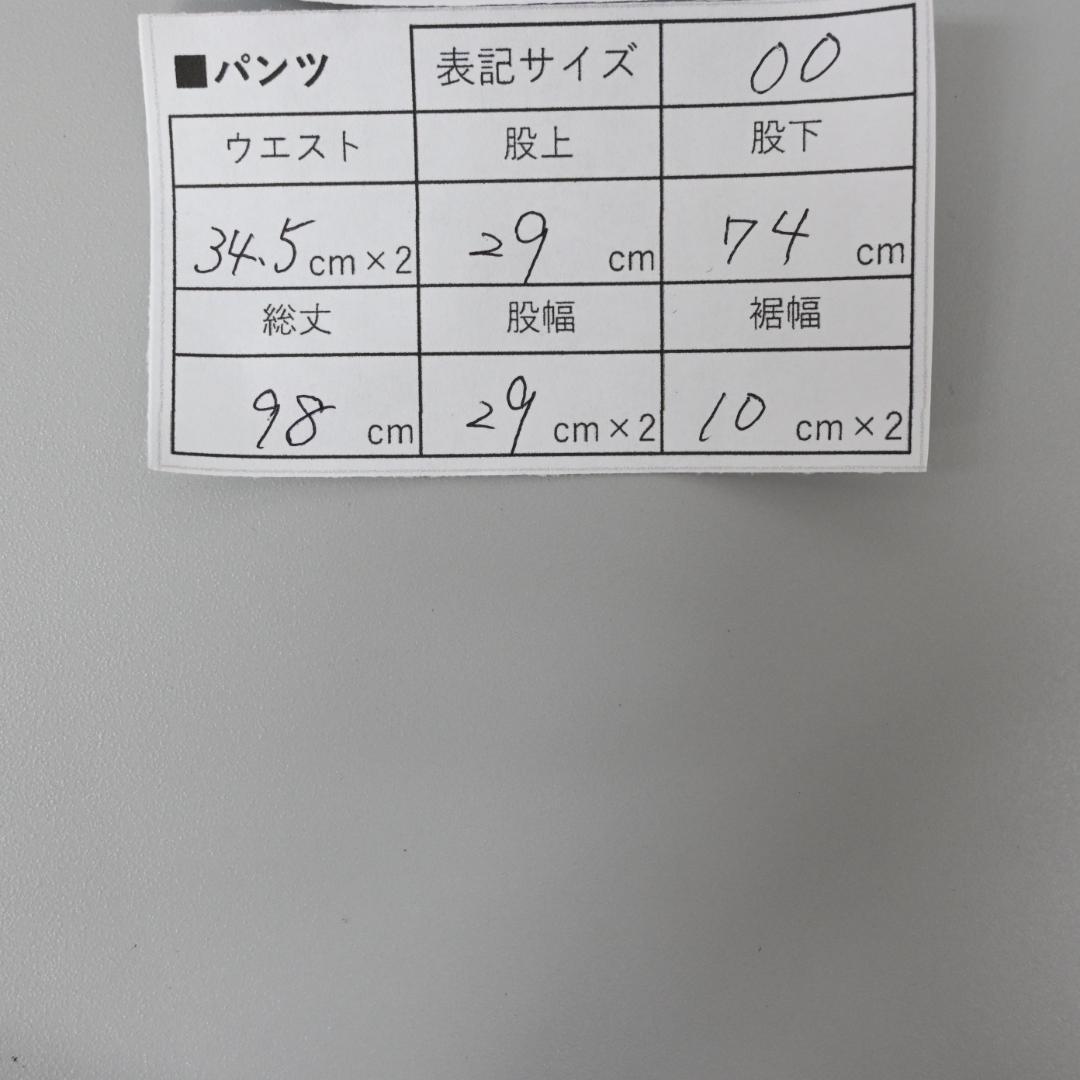 ■パンツ 表記サイズ 00
ウエスト 股上 股下
34.5cm×2 29 cm 74 cm
総丈 股幅 裾幅
98 cm 29 cm×2 10 cm×2